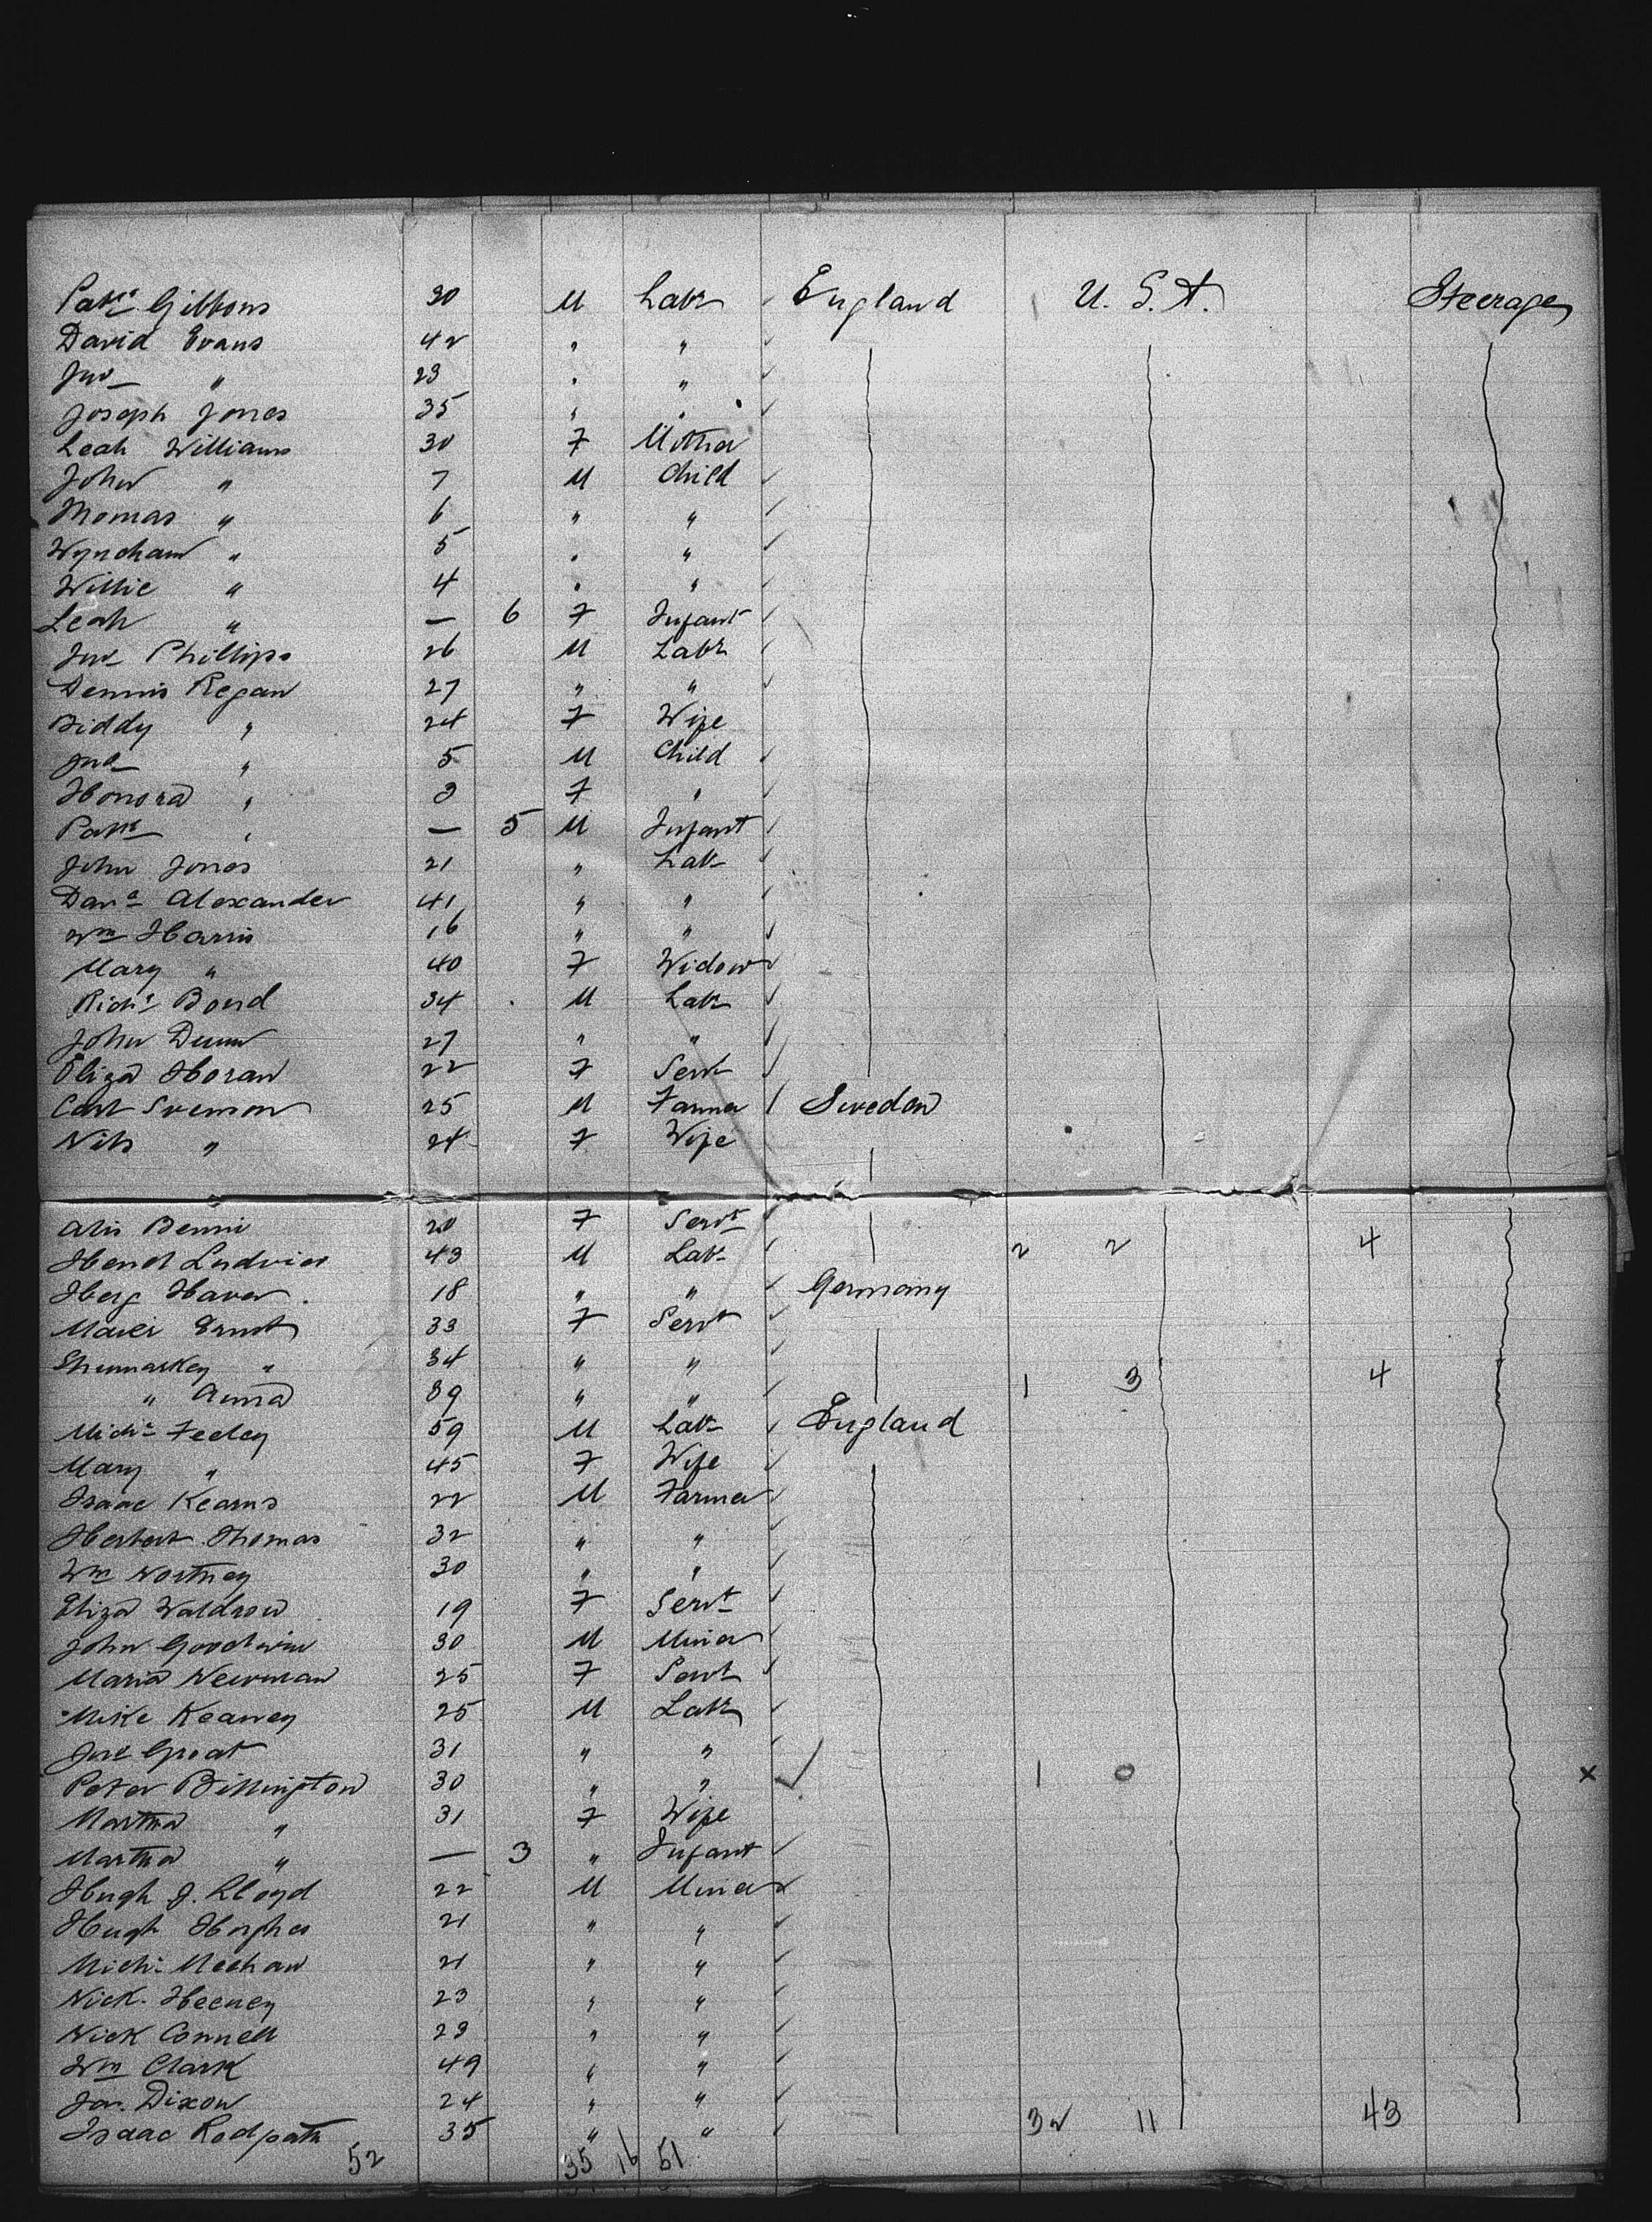 Patk Gibbons 30 M Labr England U. S. A. Steerage
David Evans 42 " "
Jno " 23 " "
Joseph Jones 35 " "
Leah Williams 30 F Mother
John " 7 M Child
Thomas " 6 " "
Wyndham " 5 " "
Willie " 4 " "
Leah " — 6 F Infant
Jno Phillips 26 M Labr
Dennis Regan 27 " "
Biddy " 24 F Wife
Jno " 5 M Child
Honora " 3 F "
Patk " — 5 M Infant
John Jones 21 " Lab
Danl Alexander 41 " "
Wm Harris 16 " "
Mary " 40 F Widow
Richd Bond 34 M Labr
John Dunn 27 " "
Eliza Horan 22 F Servt
Carl Svenson 25 M Farmer Sweden
Nils " 24 F Wife
Benni 20 F Servt
Ludvies 43 M Lab 2 2 4
Haver 18 " " Germany
Ernst 33 F Servt
" 34 " "
" Anna 39 " " 1 3 4
Michl Feeley 59 M Lab England
Mary " 45 F Wife
Isaac Kearns 22 M Farmer
Herbert Thomas 32 " "
Wm Wortney 30 " "
Eliza Waldron 19 F Servt
John Goodwin 30 M Miner
Maria Newman 25 F Servt
Mike Keaney 25 M Labr
Groat 31 " "
Peter Billington 30 " " 1 0 x
Martha " 31 F Wife
Martha " — 3 " Infant
Hugh J. Lloyd 22 M Miner
Hugh Hughes 21 " "
Michl Meehan 21 " "
Nick. Heeney 23 " "
Nick Connell 23 " "
Wm Clark 49 " "
Jas. Dixon 24 " "
Isaac Redpath 35 " " 32 11 43
52 35 16 51